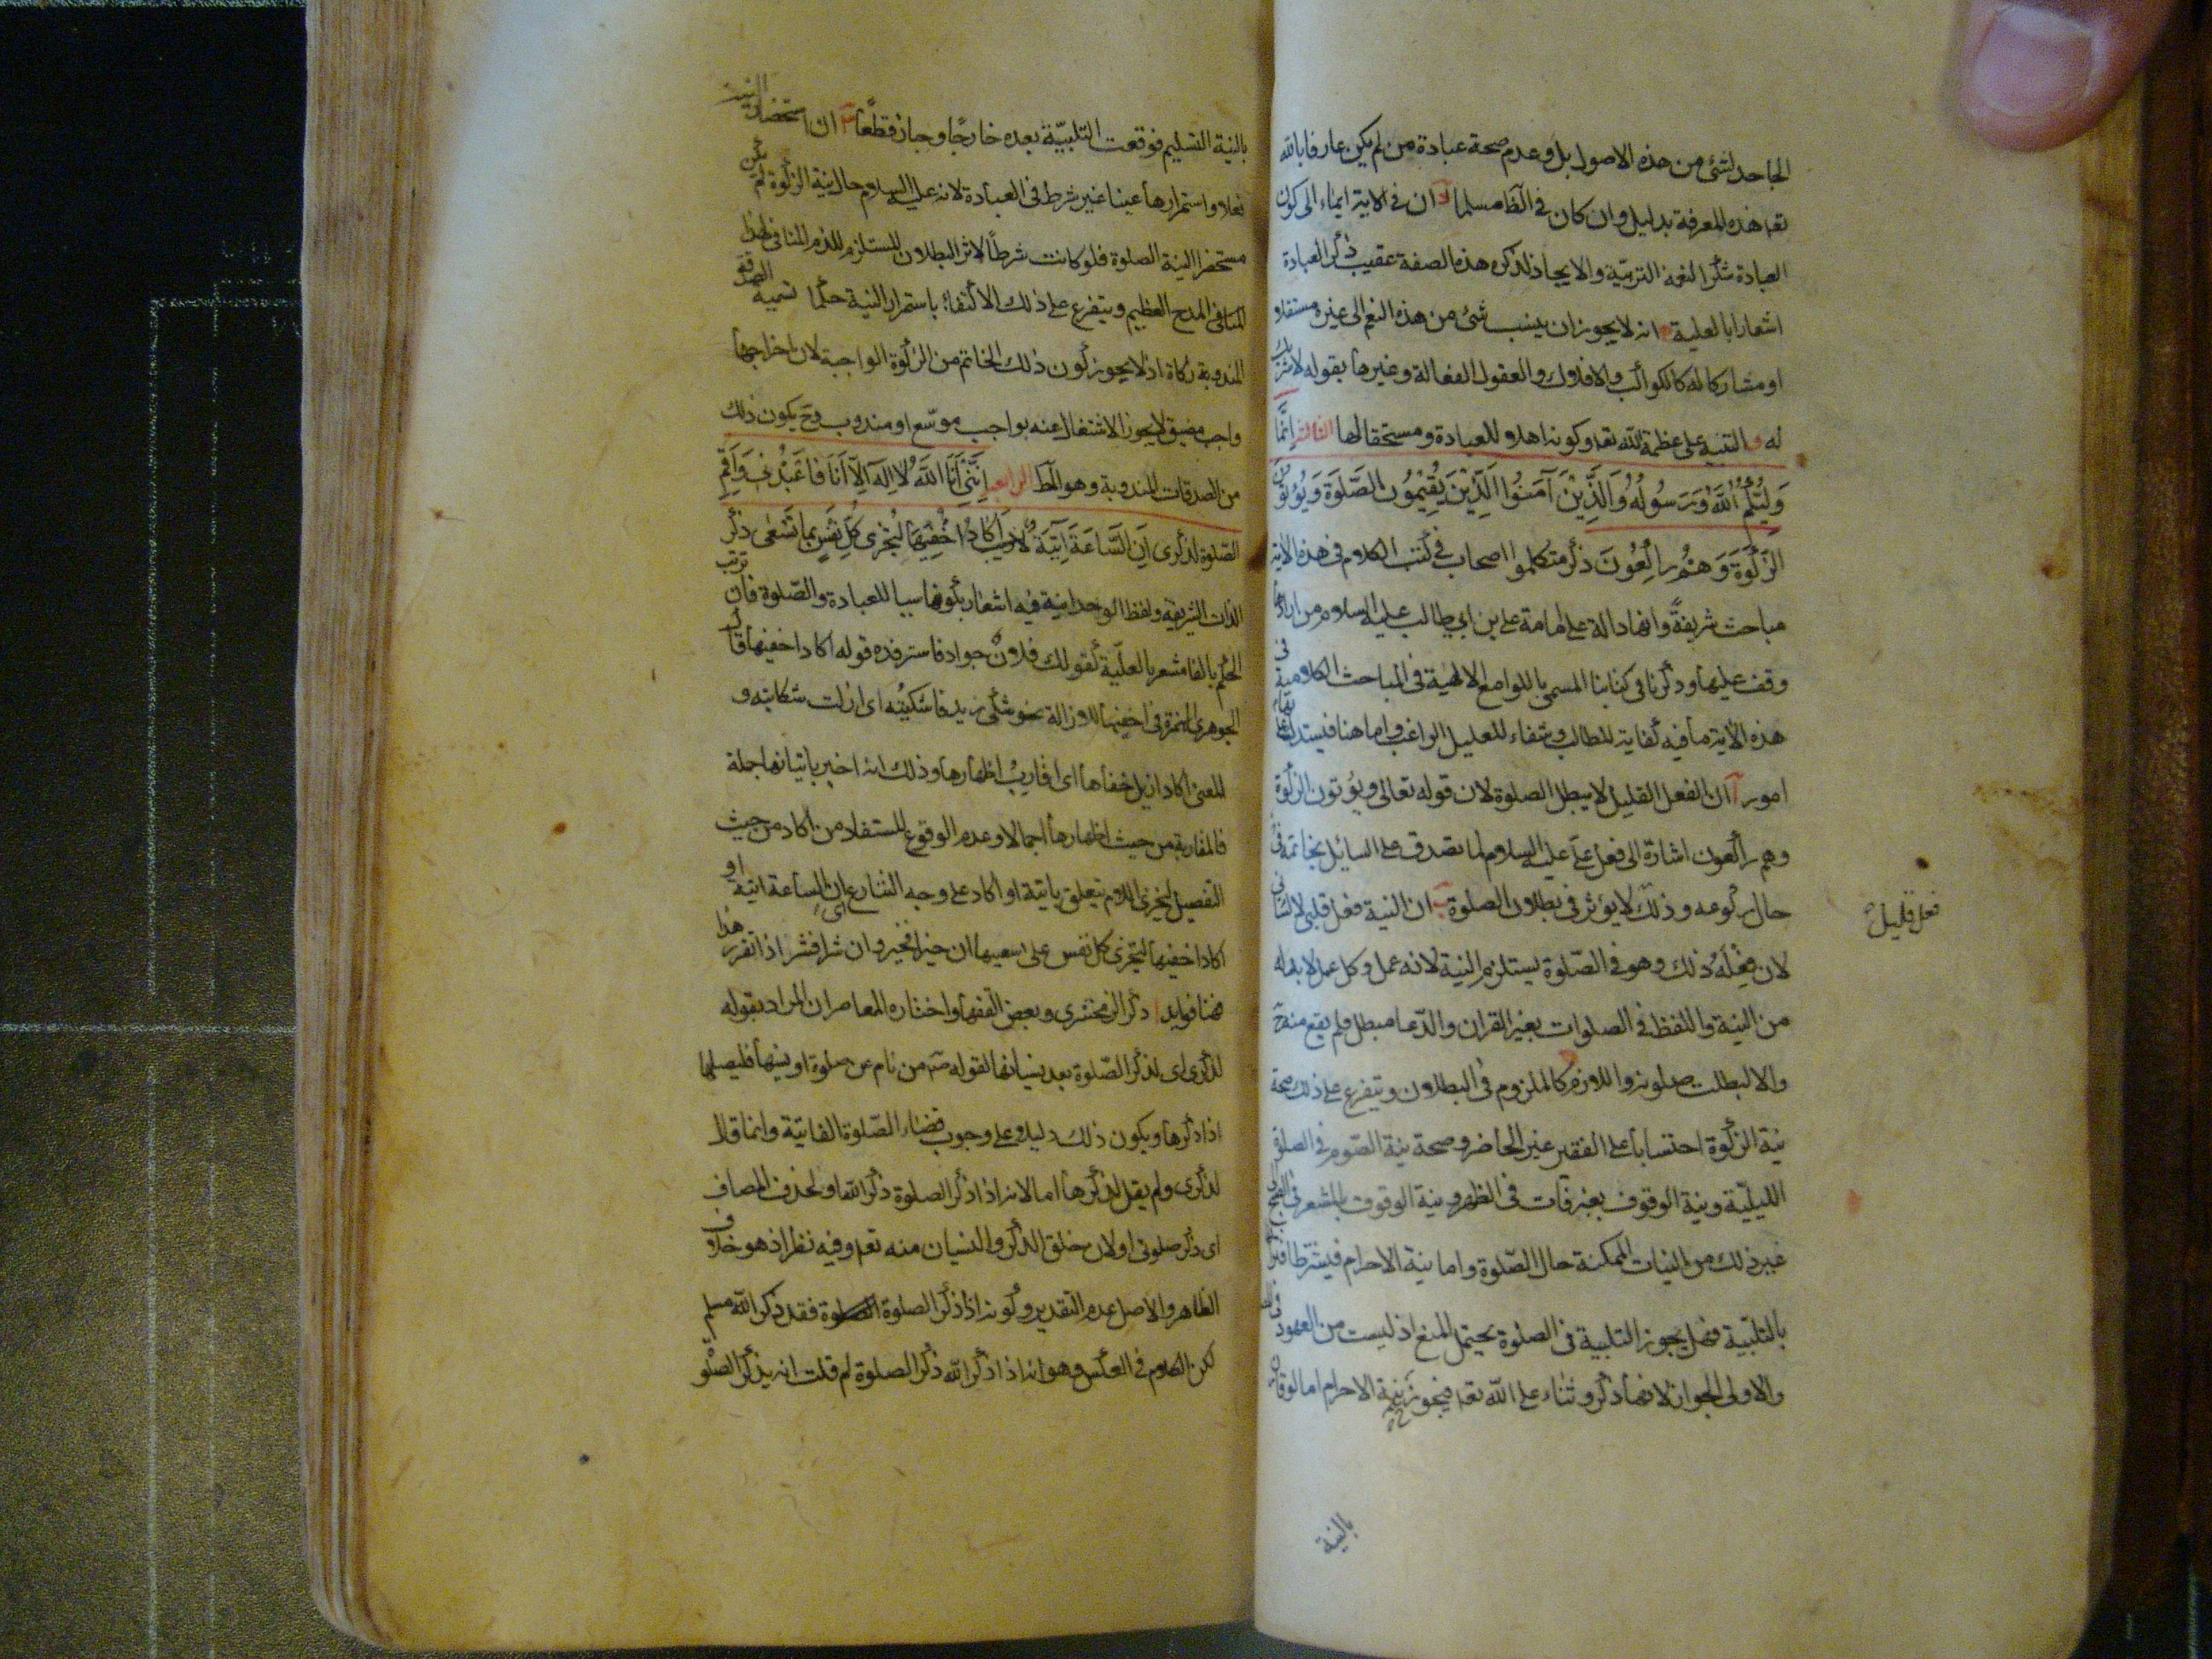 الجاحد لشئ من هذه الاصول بل وعدم صحة عبادة من لم يكن عارفا بالله
تعه هذه المعرفة بدليل وان كان في الظاهر مسلما ان في الاية ايماء الى كون
العبادة شكرا لنعمة التربية والايجاد لذكره هذه الصفة عقيب ذكر العبادة
اشعارا بالعلية انه لا يجوز ان ينسب شئ من هذه النعم الى غيره مستقلا
او مشاركا له كالكواكب والافلاك والعقول الفعالة وغيرها بقوله لا شريك
له والتنبيه على عظمة الله تعه وكونه اهلا للعبادة ومستحقا لها الثالثة اِنَّمَا
وَلِيُّكُمُ اللّٰهُ وَرَسُولُهُ وَالَّذِينَ آمَنُوا الَّذِينَ يُقِيمُونَ الصَّلٰوةَ وَيُؤْتُونَ
الزَّكٰوةَ وَهُمْ رَاكِعُونَ ذكر متكلموا اصحاب في كتب الكلام في هذه الاية
مباحث شريفة وانها دالة على امامة علي بن ابي طالب عليه السلام من ارادها
وقف عليها وذكرنا في كتابنا المسمى باللوامع الالهية في المباحث الكلامية في
هذه الاية ما فيه كفاية للطالب وشفاء للعليل الراغب واما هنا فيستدل بها على
امور آ ان الفعل القليل لا يبطل الصلوة لان قوله تعالى ويؤتون الزكوة
وهم راكعون اشارة الى فعل علي عليه السلام لما تصدق على السائل بخاتمه في
حال ركوعه وذلك لا يؤثر في بطلان الصلوة ب ان النية فعل قلبي لا لساني
فعل قليل
لان فعله ذلك وهو في الصلوة يستلزم النية لانه عمل وكل عمل لا بد له
من النية واللفظ في الصلوات بغير القران والدعا مبطل فلم يقع منه
والا لبطلت صلوته واللازم كالملزوم في البطلان ويتفرع على ذلك صحة
نية الزكوة احتسابا على الفقير غير الحاضر وصحة نية الصوم في الصلوة
الليلية ونية الوقوف بعرفات في الظهر ونية الوقوف بالمشعر في الصبح
غير ذلك من النيات الممكنة حال الصلوة واما نية الاحرام فيشترط اقترانها
بالتلبية فهل يجوز التلبية في الصلوة يحتمل المنع اذ ليست من المعهود
والاولى الجواز لانها ذكر وثناء على الله تعه فيجوز نية الاحرام اما لو قارن
بالنية
بالنية التسليم فوقعت التلبية بعده خارجا وجاز قطعا ان استحضار النية
فعلا واستمرارها عينا غير شرط في العبادة لانه عليه السلام حال نية الزكوة لم يكن
مستحضرا لنية الصلوة فلو كانت شرطا لاثر البطلان المستلزم للذم المنافي لهذا
المنافي المدح العظيم ويتفرع على ذلك الاكتفاء باستمرار النية حكما تسمية الصدقة
المندوبة زكاة اذ لا يجوز كون ذلك الخاتم من الزكوة الواجبة لان اخراجها
واجب مضيق لا يجوز الاشتغال عنه بواجب موسع او مندوب وح يكون ذلك
من الصدقات المندوبة وهو المط الرابعة اِنَّنِي اَنَا اللّٰهُ لَا اِلٰهَ اِلَّا اَنَا فَاعْبُدْنِي وَاَقِمِ
الصَّلٰوةَ لِذِكْرِي اِنَّ السَّاعَةَ آتِيَةٌ اَكَادُ اُخْفِيهَا لِتُجْزٰى كُلُّ نَفْسٍ بِمَا تَسْعٰى ذكر
الذات الشريفة ولفظ الوحدانية فيه اشعار بكونها سببا للعبادة والصلوة فان ترتب
الحكم بالفا مشعر بالعلية كقولك فلان جواد فاسترفده قوله اكاد اخفيها قال
الجوهري الهمزة في اخفيها للازالة نحو شكى زيد فاشكيته اى ازلت شكايته و
المعنى اكاد ازيل خفاها اى اقارب اظهارها وذلك انه اخبر باتيانها جملة
فالمقاربة من حيث اظهارها اجمالا وعدم الوقوع المستفاد من اكاد من حيث
التفصيل لتجزى اللام يتعلق باتية او اكاد على وجه التنازع اى ان الساعة اتية او
اكاد اخفيها لتجزى كل نفس على سعيها ان خيرا فخير وان شرا فشر اذا تقرر هذا
فهنا فوايد ا ذكر الزمخشري وبعض الفقها واختاره المعاصر ان المراد بقوله
لذكرى اى لذكر الصلوة بعد نسيانها لقوله ص من نام عن صلوة او نسيها فليصلها
اذا ذكرها ويكون ذلك دليلا على وجوب قضاء الصلوة الفايتة وانما قال
لذكرى ولم يقل لذكرها اما لانه اذا ذكر الصلوة ذكر الله او لحذف المضاف
اى ذكر صلوتى او لان خلق الذكر والنسيان منه تعه وفيه نظر اذ هو خلاف
الظاهر والاصل عدم التقدير وكونه اذا ذكر الصلوة فقد ذكر الله مسلم
لكن الكلام في العكس وهو انه اذا ذكر الله ذكر الصلوة لم قلت انه يذكر الصلو